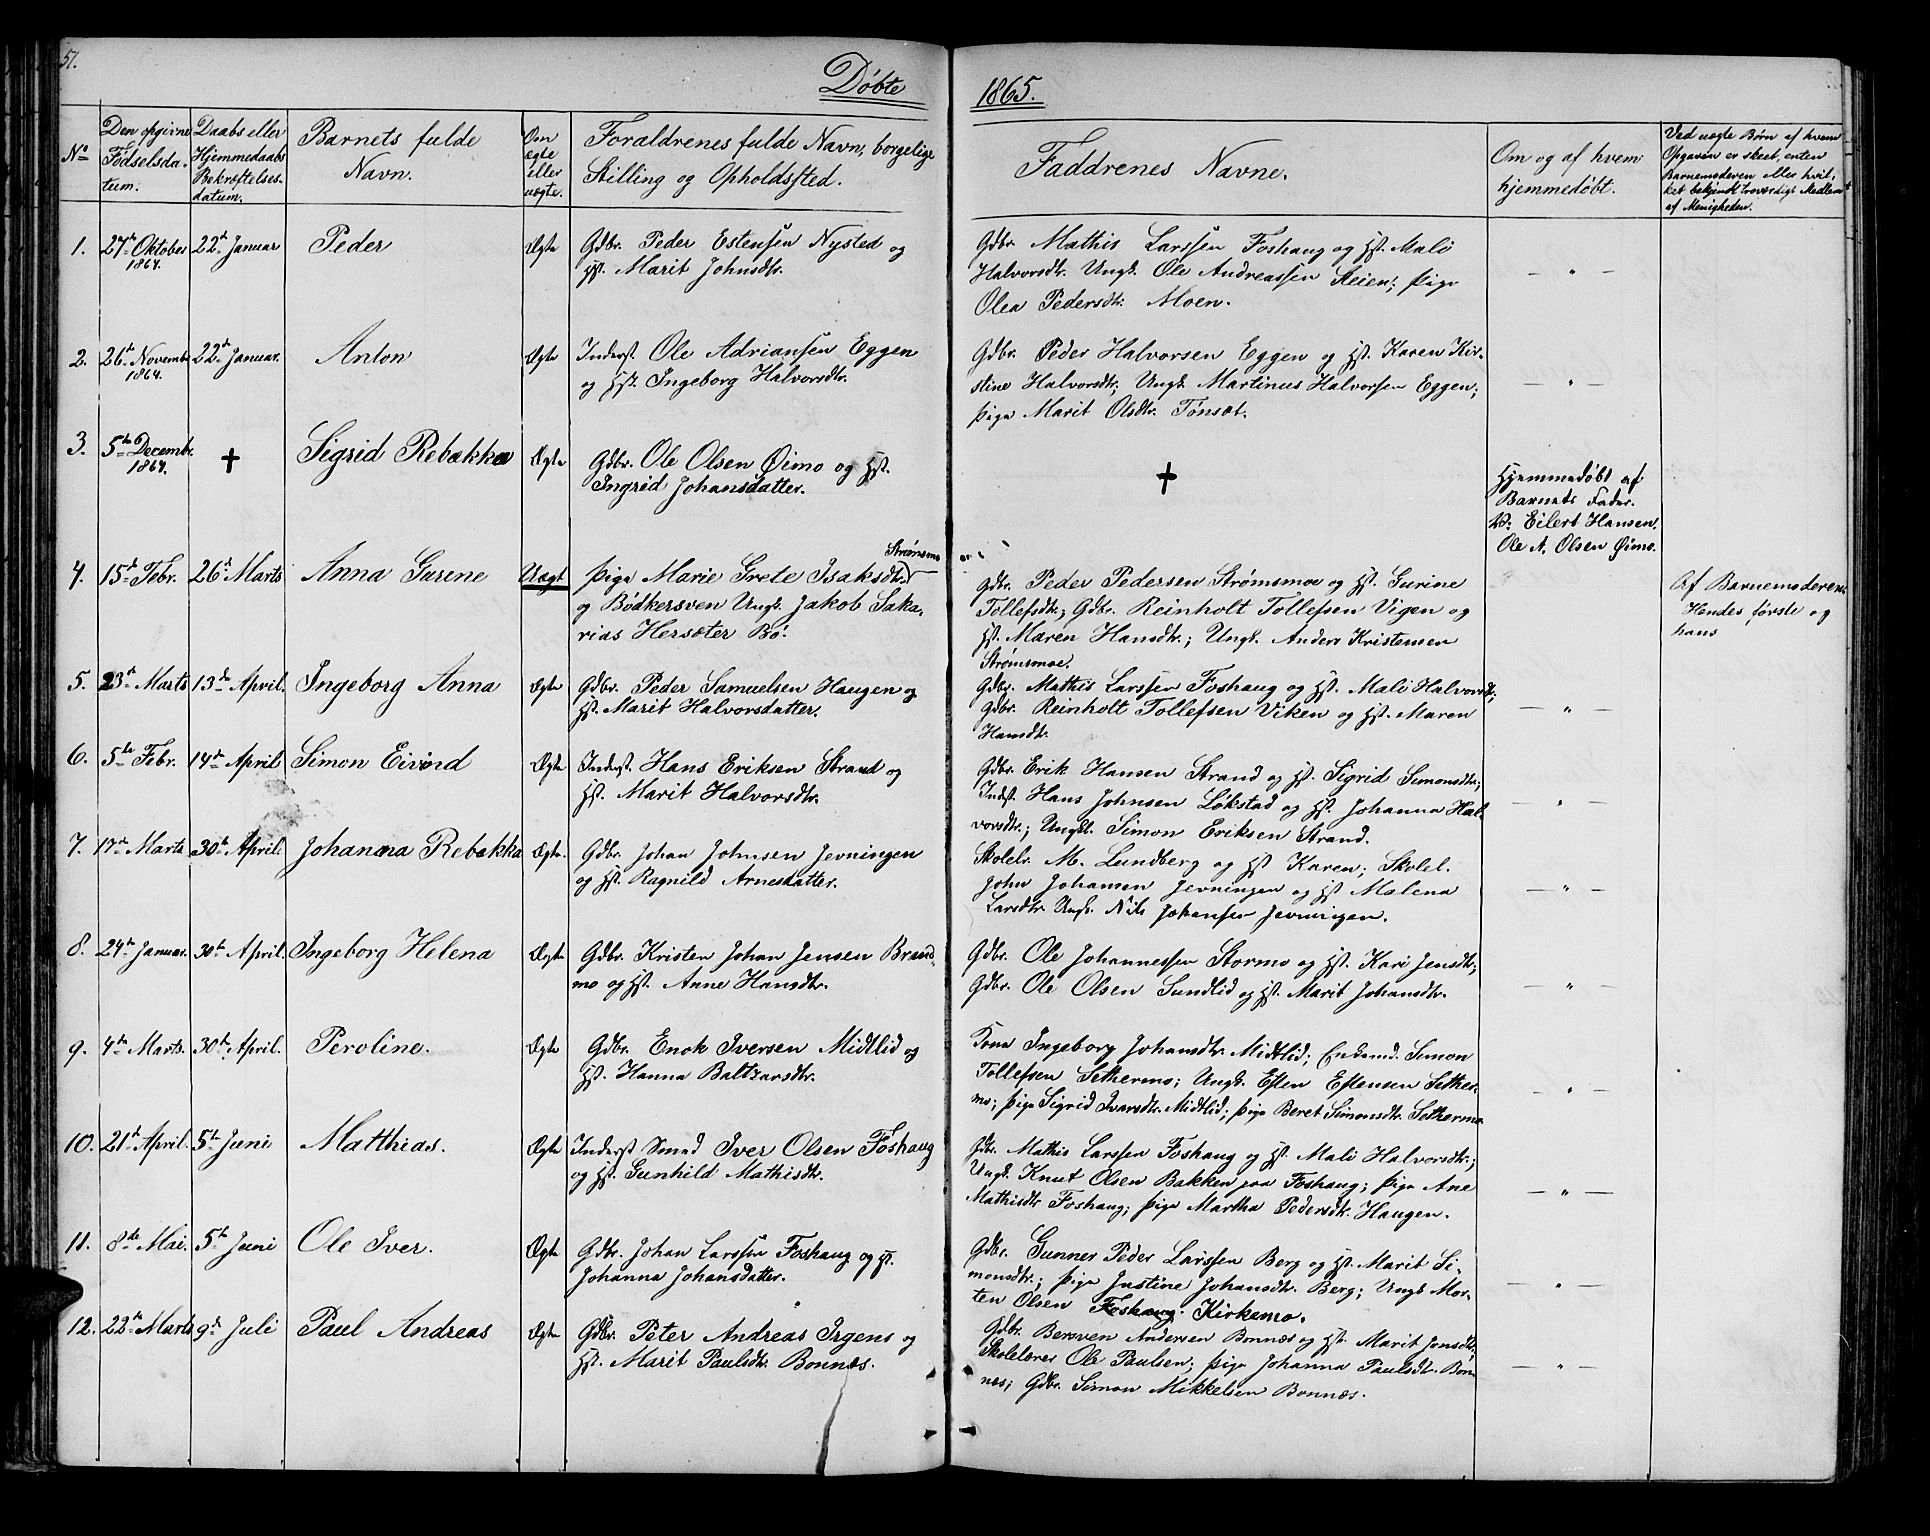 51.
Döbte
1865.
No
Den opgivne Fødselsdatum.
Daabs eller Hjemmedaabs Bekræftelsesdatum.
Barnets fulde Navn.
Om ægte eller uægte.
Forældrenes fulde Navn, borgelige Stilling og Opholdssted.
Faddrenes Navne.
Om og af hvem hjemmedøbt.
Ved uægte Børn af hvem Opgaven er skeet, enten Barnemoderen eller hvilket bekjendt troværdigt Medlem af Menigheden.
1. 27de Oktober 1864. 22de Januar Peder Ægte Gdbr. Peder Estensen Nysted og
Hst. Marit Johnsdtr.
Gdbr. Mathis Larssen Foshaug og Hst. Mali
Halvorsdtr. Ungk. Ole Andreassen Steien; Pige
Olea Pedersdtr. Moen.
— " —
2. 26de Novembr 1864. 22de Januar. Anton Ægte Inderst. Ole Adriansen Eggen
og Hst. Ingeborg Halvorsdtr.
Gdbr. Peder Halvorsen Eggen og Hst. Karen Kir-
stine Halvorsdtr; Ungk. Martinus Halvorsen Eggen;
Pige Marit Olsdtr. Tønsæt.
— " —
3. 5te Decembr. 1864. † Sigrid Rebækka Ægte Gdbr. Ole Olsen Øimo og Hst.
Ingrid Johansdatter.
†
Hjemmedøbt af
Barnets Fader.
Eilert Hansen.
Ole A. Olsen Øimo.
4. 15de Febr. 26de Marts Anna Gurene Uægt Pige Marie Grete Isaksdtr. Strømsmo
og Bødkersven Ungk. Jakob Saka-
rias Hersæter Bö.
Gdbr. Peder Pedersen Strømsmoe og Hst. Gurine
Tollefsdtr; Gdbr. Reinholt Tollefsen Vigen og
Hst. Maren Hansdtr.; Ungk. Anders Kristensen
Strømsmoe.
Af Barnemoderen.
Hendes første og
hans
5. 23de Marts 13de April. Ingeborg Anna Ægte Gdbr. Peder Samuelsen Haugen og
Hst. Marit Halvorsdatter.
Gdbr. Mathis Larssen Foshaug og Hst. Mali Halvorsdtr;
Gdbr. Reinholt Tollefsen Viken og Hst. Maren
Hansdtr.
— " —
6. 5te Febr. 14de April Simon Eivind Ægte Inderst. Hans Eriksen Strand og
Hst. Marit Halvorsdtr.
Gdbr. Erik Hansen Strand og Hst. Sigrid Simonsdtr;
Indst. Hans Johnsen Løkstad og Hst. Johanna Hal-
vorsdtr.; Ungk. Simon Eriksen Strand.
— " —
7. 17de Marts 30te April. Johanna Rebekka Ægte. Gdbr. Johan Johnsen Jevningen
og Hst. Ragnild Arnesdatter.
Skolelr. M. Lundberg og Hst Karen; Skolel.
John Johansen Jevningen og Hst Malena
Larsdtr. Ungk. Nils Johansen Jevningen.
— " —
8. 24de Januar. 30te April. Ingeborg Helena Ægte Gdbr. Kristen Johan Jensen Brand-
mo og Hst. Anne Hansdtr.
Gdbr. Ole Johannessen Stormo og Hst. Kari Jensdtr;
Gdbr. Ole Olsen Sundlid og Hst. Marit Johansdtr.
— " —
9. 4de Marts. 30te April. Peroline. Ægte Gdbr. Enok Iversen Midtlid og
Hst. Hanna Baltzarsdtr.
Kona Ingeborg Johansdtr. Midtlid; Enkemd. Simon
Tollefsen Sethermo; Ungk. Esten Estensen Sether-
mo; Pige Sigrid Ivarsdtr. Midtlid; Pige Beret Simonsdtr. Sethermo
— " —
10. 21de April. 5te Juni Matthias. Ægte Inderst Smed Iver Olsen Foshaug
og Hst. Gunhild Mathisdtr.
Gdbr. Mathis Larssen Foshaug og Hst Mali Halvorsdtr.;
Ungk. Knut Olsen Bakken paa Foshaug; Pige Ane
Mathisdtr Foshaug; Pige Martha Pedersdtr. Haugen.
— " —
11. 8de Mai. 5te Juni Ole Iver. Ægte Gdbr. Johan Larssen Foshaug og Hst.
Johanna Johansdatter.
Gdbr. Gunner Peder Larssen Berg og Hst. Marit Si-
monsdtr.; Pige Justine Johansdtr. Berg; Ungk Mor-
ten Olsen Foshaug. Kirkemo.
— " —
12. 22de Marts 9de Juli Paul Andreas Ægte Gdbr. Peter Andreas Irgens og
Hst. Marit Paulsdtr. Bonnæs.
Gdbr. Bersven Andersen Bonnæs og Hst. Marit Jonsdtr;
Skolelærer Ole Paulsen; Pige Johanna Paulsdtr. Bon-
næs; Gdbr. Simon Mikkelsen Bonnæs.
— " —